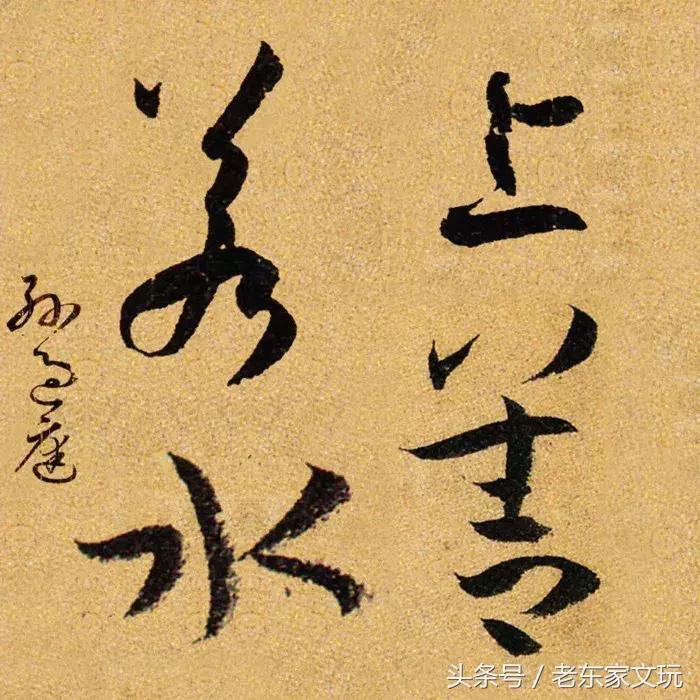 上善
若水
孙过庭
头条号 / 老东家文玩